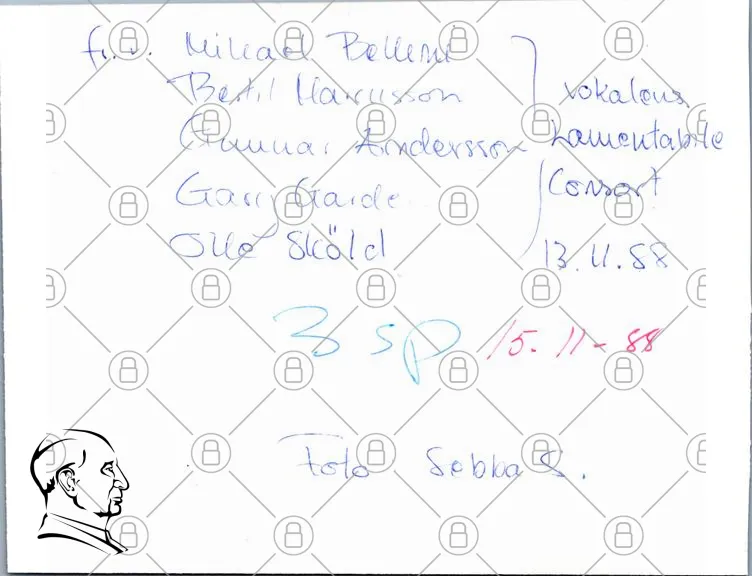 fr. v. Mikael Bellini
Bertil Marcusson
Gunnar Andersson
Gary Garde
Olle Sköld
vokalens
Lamentabile
Consort
13.11.88
3 sp 15.11-88
Foto Sebba S.